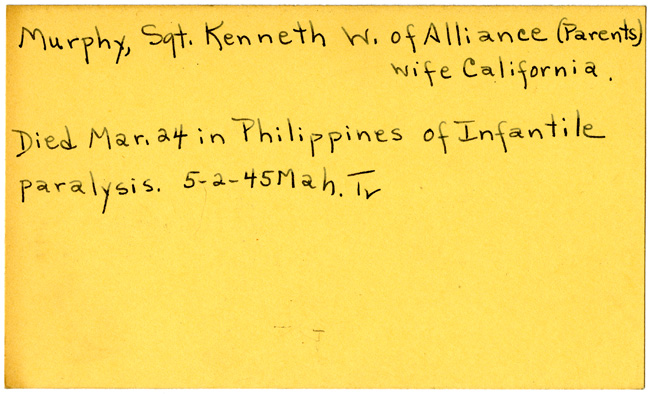 Murphy, Sgt. Kenneth W. of Alliance (Parents)
wife California.
Died Mar. 24 in Philippines of Infantile
paralysis. 5-2-45 Mah. Tr